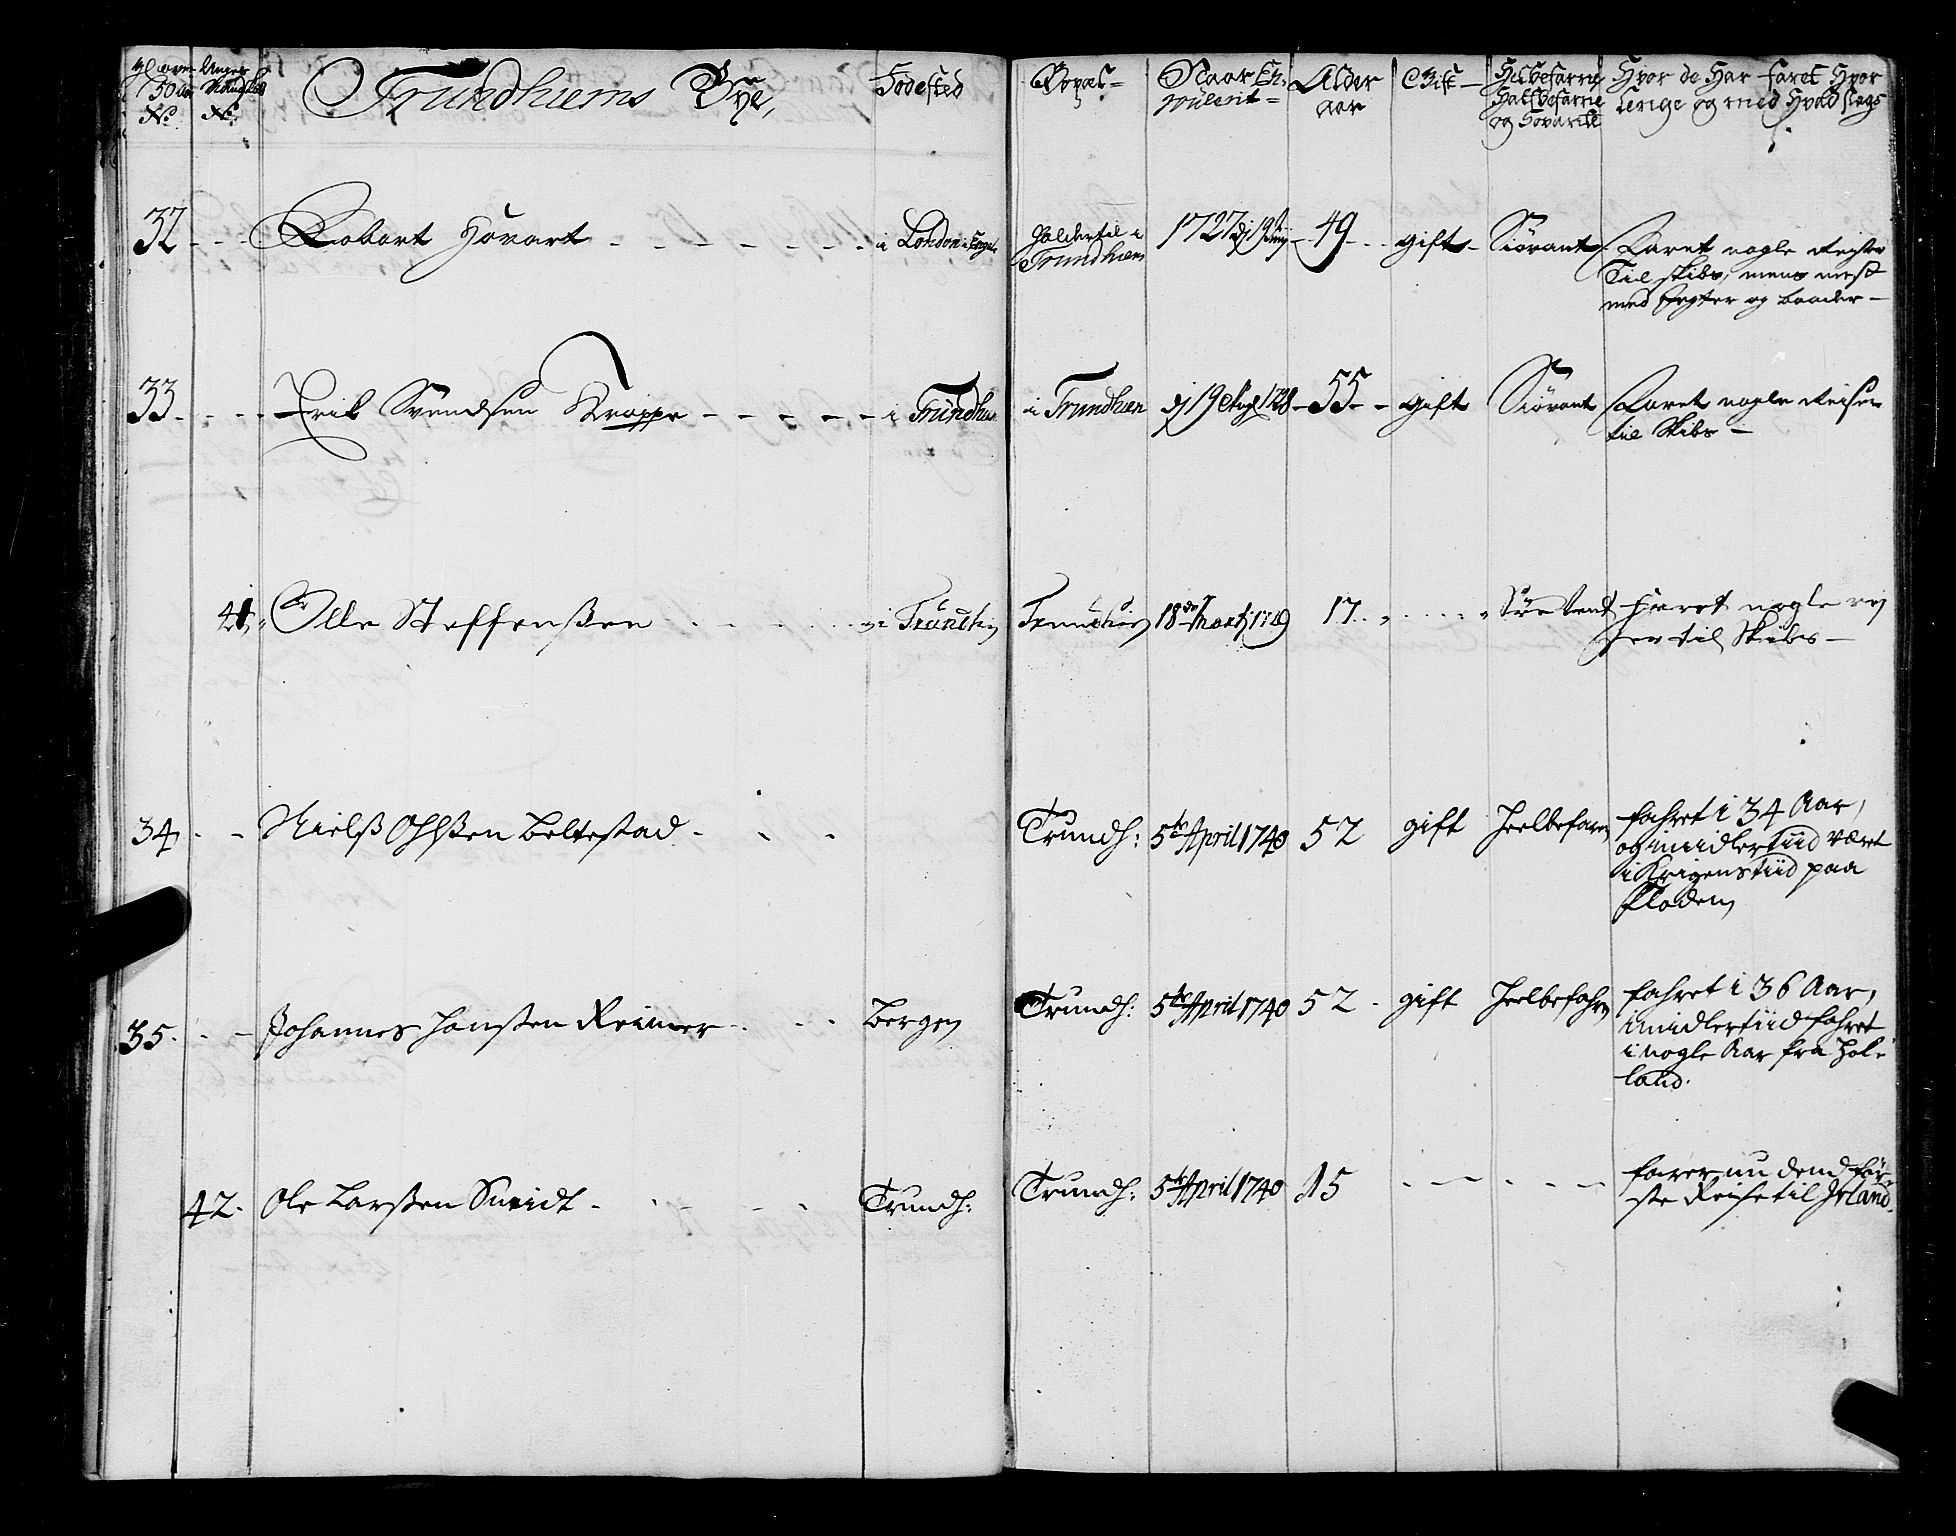 over 50 aar No
Unge Mandskab No
Trundhiems Bye,
Fødested
Bopæl
Naar Enrulerit
Alder aar
Gift
Heelbefarne Halfbefarne og Søvante
Hvor de Har faret Hvor Lenge og med Hvad slags
32 Robart Hovart i London i Engel. Holder til i Trundhiem 1727 dj 19 Junij 49 gift Siøvant
Faret nogle Reiser
Til skibs, mens mest
med Jegter og baader
33 Erik Svendsen Krappe i Trundhiem i Trundhiem dj 19 Aug 1728 55 gift Siøvant
Faret nogle Reiser
til Skibs
41 Olle Steffenssen i Trundhiem Trundhiem 18de Martj 1739 17 Søe vent
Faret nogle rej
ser til Skibs
34 Nielss Ohlssen Beltestad Trundh: 5te April 1740 52 gift Heelbefaren
fahret i 34 Aar,
og imidlertiid været
i Krigens tiid paa
Floden
35 Johannes Hanssen Reimer Bergen Trundh: 5te April 1740 52 gift Heelbefahren
fahret i 36 Aar,
imidlertiid fahret
i nogle Aar fra Hol-
land.
42 Ole Larssen Smidt Trundh: Trundh: 5te April 1740 15
farer nu dend før-
ste Reise til Irland.